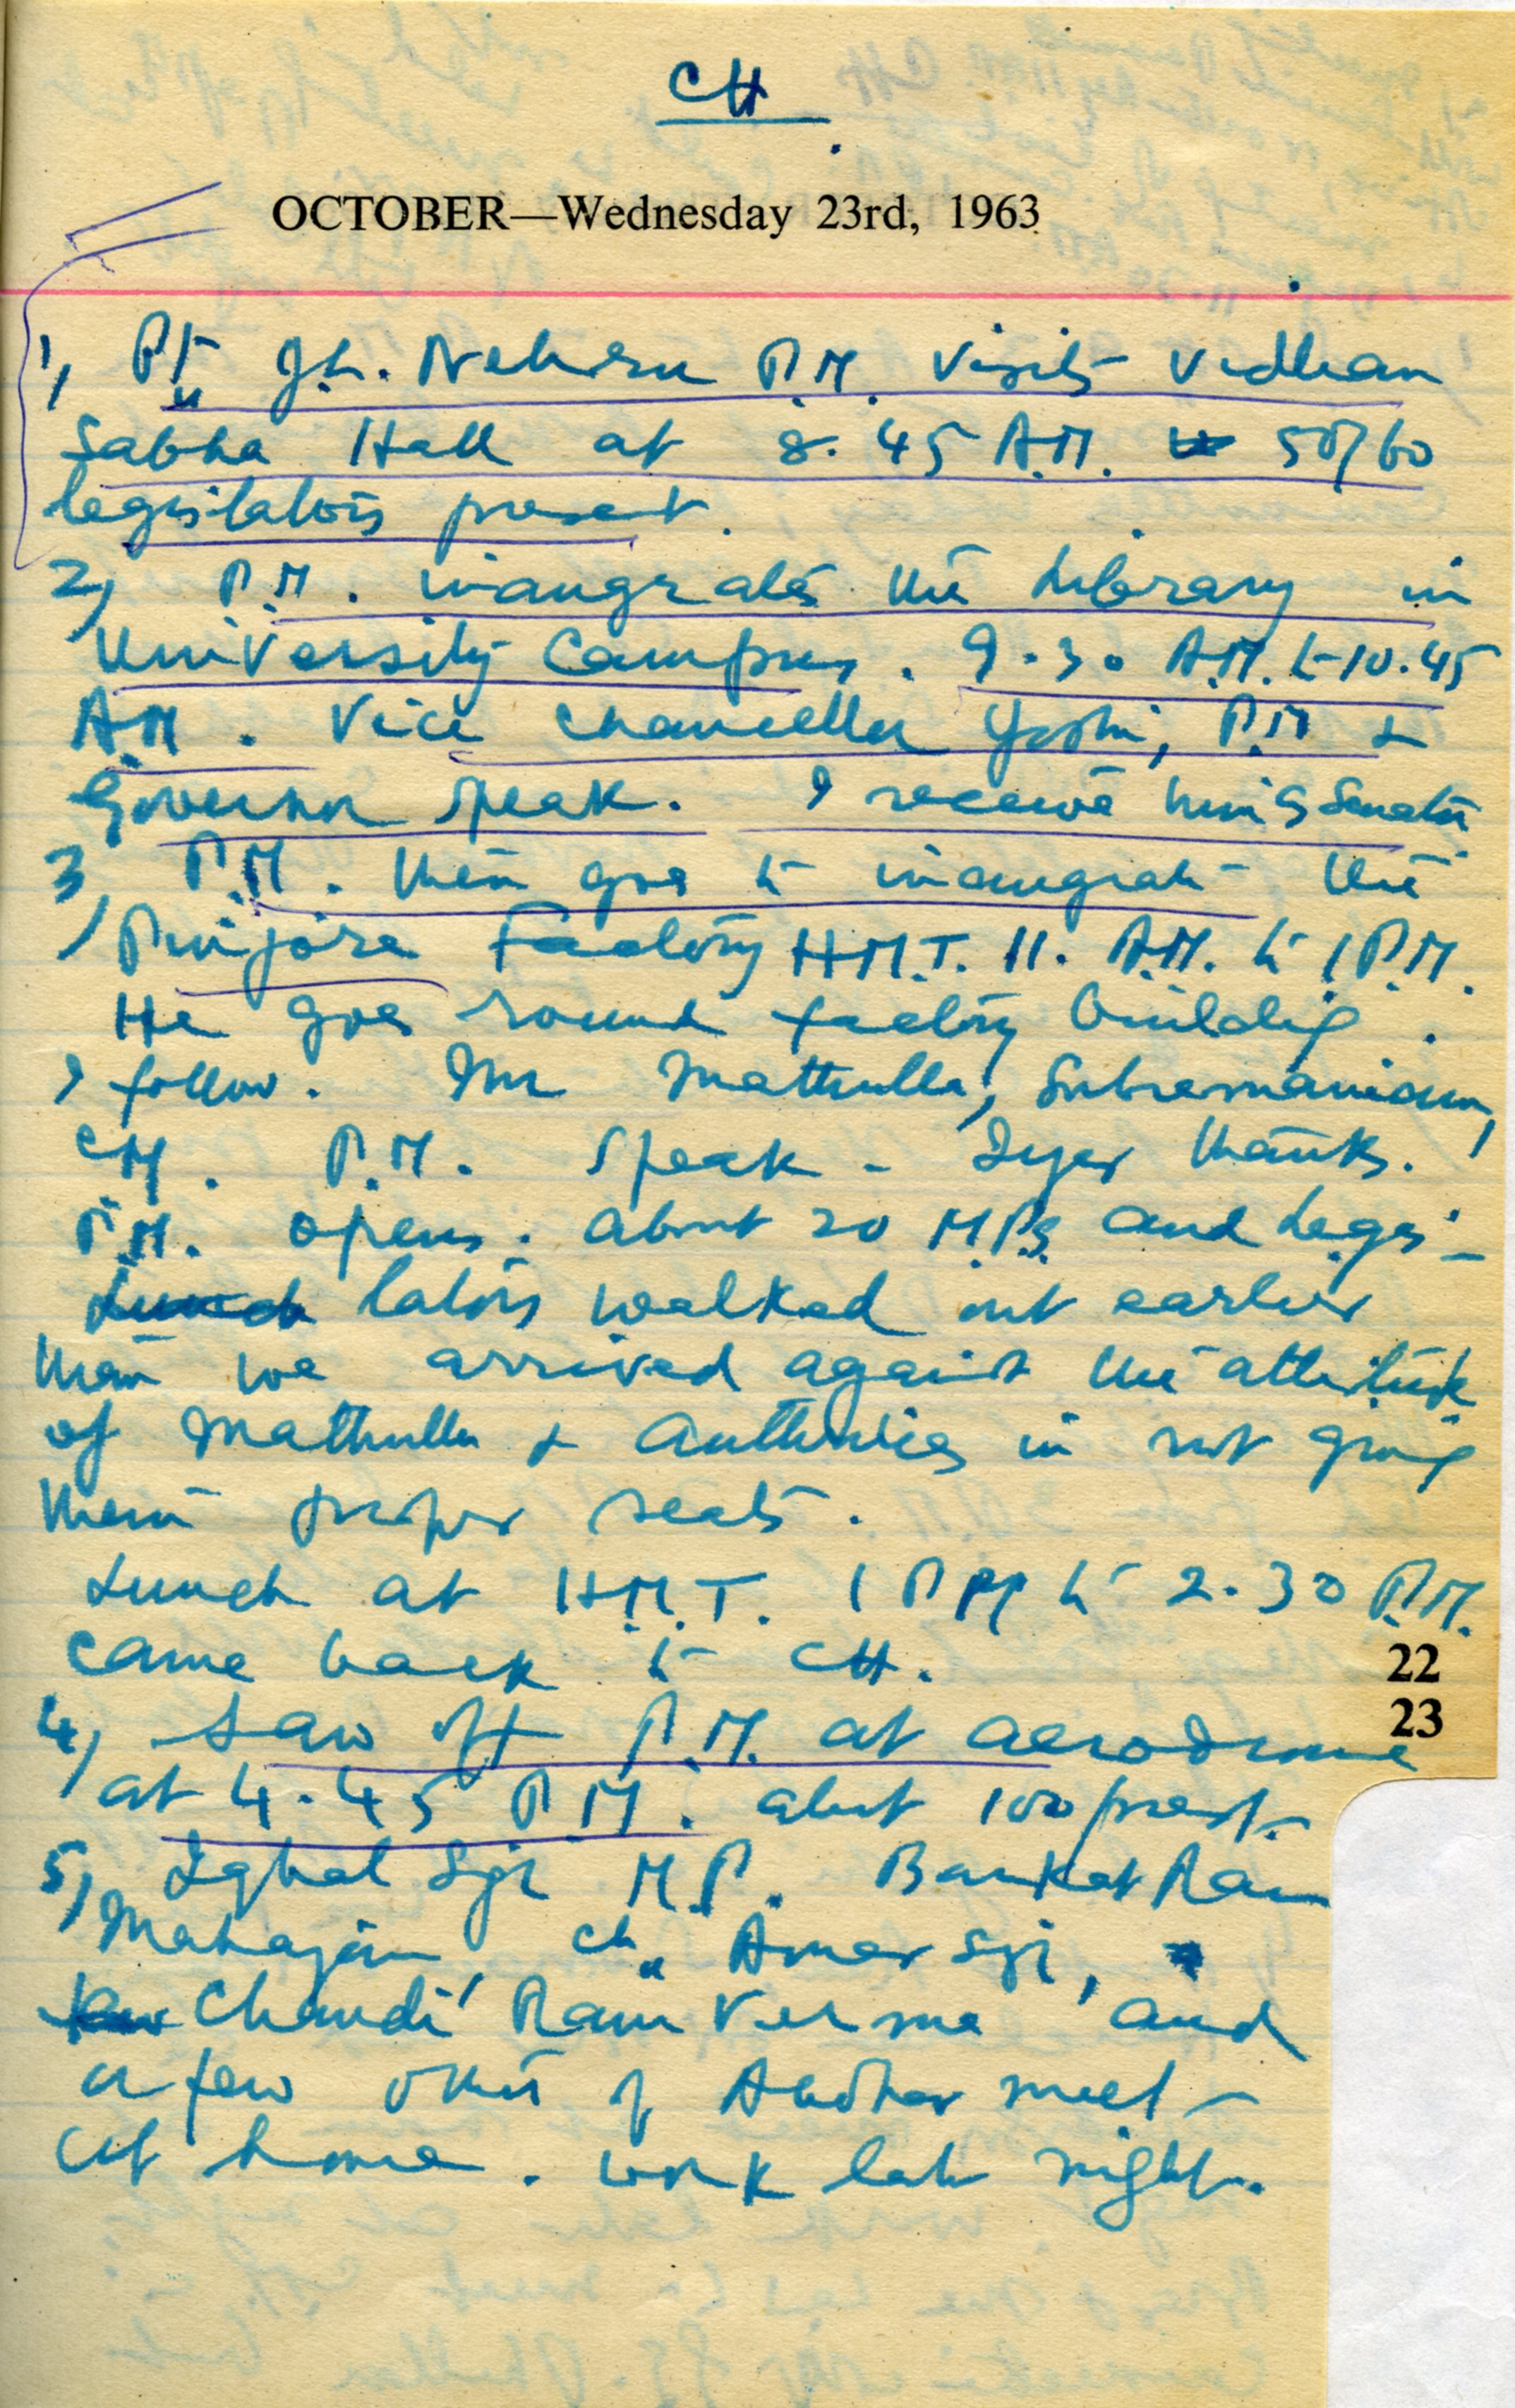 CH
OCTOBER—Wednesday 23rd, 1963
1, Pt. J.L. Nehru P.M. visits Vidhan
Sabha Hall at 8.45 A.M. 50/60
legislators present.
2, P.M. inaugrates the Library in
University Campus. 9.30 A.M. to 10.45
A.M. Vice Chancellor Joshi, P.M &
Governor speak. I receive him & Senators
3, P.M. then goes to inaugrate the
Pinjore Factory H.M.T. 11. A.M. to 1 P.M.
He goes round factory building.
I follow. Mr Mathulla, Subramaniam,
CM. P.M. speak - Iyer thanks.
P.M. opens. About 20 M.P.s and Legis-
Lunch lators walked out earlier
than we arrived against the attitude
of Mathulla & authorities in not giving
them proper seats.
Lunch at H.M.T. 1 PM to 2.30 P.M.
Came back to CH.
22
4, Saw off P.M. at aerodrome
23
at 4.45 P.M. about 100 present.
5, Iqbal Sgh M.P. Barkat Ram
Mahajan, Ch. Amar Sgh,
Chandi Ram Verma and
a few others of Abohar meet
at home. Work late night.